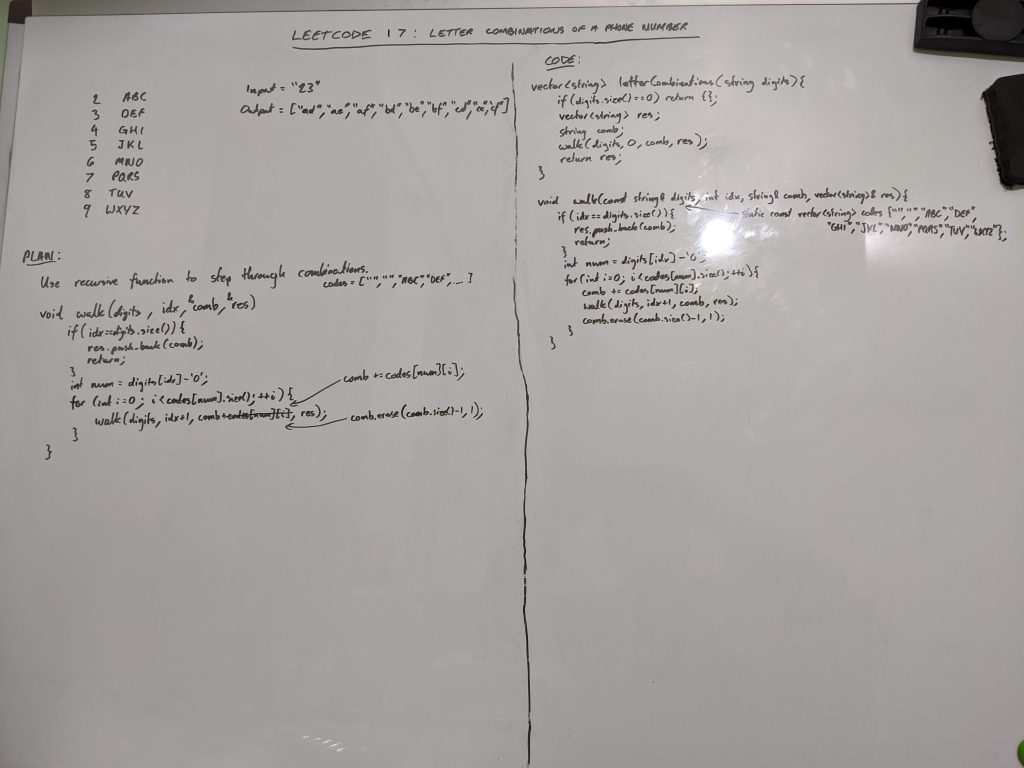 LEETCODE 17: LETTER COMBINATIONS OF A PHONE NUMBER
2 ABC
3 DEF
4 GHI
5 JKL
6 MNO
7 PQRS
8 TUV
9 WXYZ
Input = "23"
Output = ["ad","ae","af","bd","be","bf","cd","ce","cf"]
PLAN:
Use recursive function to step through combinations.
codes = ["","","ABC","DEF",...]
void walk(digits, idx, &comb, &res)
if (idx==digits.size()) {
res.push_back(comb);
return;
}
int num = digits[idx]-'0';
for (int i=0; i<codes[num].size(); ++i) {
comb += codes[num][i];
walk(digits, idx+1, comb+codes[num][i], res);
comb.erase(comb.size()-1, 1);
}
}
CODE:
vector<string> letterCombinations(string digits){
if(digits.size()==0) return {};
vector<string> res;
string comb;
walk(digits, 0, comb, res);
return res;
}
void walk(const string& digits, int idx, string& comb, vector<string>& res){
static const vector<string> codes {"","","ABC","DEF",
"GHI","JKL","MNO","PQRS","TUV","WXYZ"};
if(idx==digits.size()){
res.push_back(comb);
return;
}
int num = digits[idx]-'0';
for(int i=0; i<codes[num].size(); ++i){
comb += codes[num][i];
walk(digits, idx+1, comb, res);
comb.erase(comb.size()-1, 1);
}
}